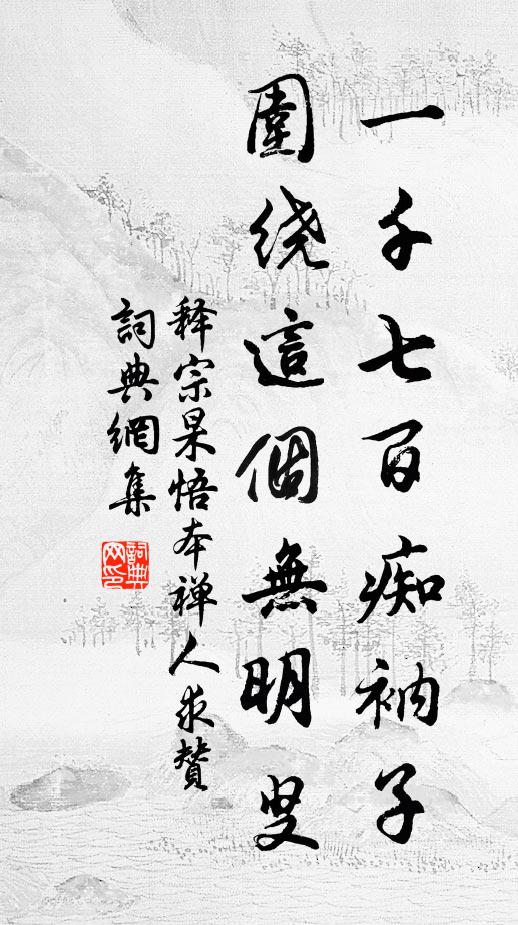 一千七百痴衲子
圍绕這個無明叟
释宗杲悟本禅人求贊
詞典網集
詞典
网印